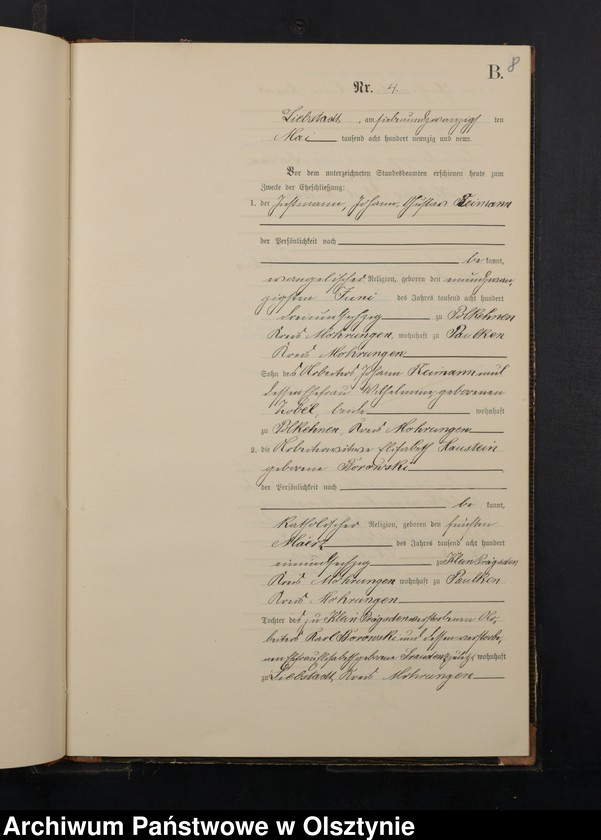 B. 8
Nr. 4.
Liebstadt, am siebenundzwanzig ten
Mai tausend acht hundert neunzig und neun.
Vor dem unterzeichneten Standesbeamten erschienen heute zum
Zwecke der Eheschließung:
1. der Johann Gustav Reimann
der Persönlichkeit nach
be kannt,
evangelischer Religion, geboren den einundzwan
zigsten Juni des Jahres tausend acht hundert
dreiundsechzig zu Polkehnen
Kreis Mohrungen, wohnhaft zu Paulken
Kreis Mohrungen
Sohn des Arbeiters Johann Reimann und
dessen Ehefrau Wilhelmine, geborenen
beide wohnhaft
zu Polkehnen, Kreis Mohrungen
2. die Arbeiterwitwe Elisabeth Haustein
geborene Borowski
der Persönlichkeit nach
be kannt,
katholischer Religion, geboren den fünften
März des Jahres tausend acht hundert
einundsechzig zu Klein Prägsden
Kreis Mohrungen wohnhaft zu Paulken
Kreis Mohrungen
Tochter des zu Klein Prägsden verstorbenen Ar-
beiters Karl Borowski und dessen verstorbe-
nen Ehefrau Elisabeth geborene zuletzt wohnhaft
zu Liebstadt, Kreis Mohrungen
Archiwum Państwowe w Olsztynie